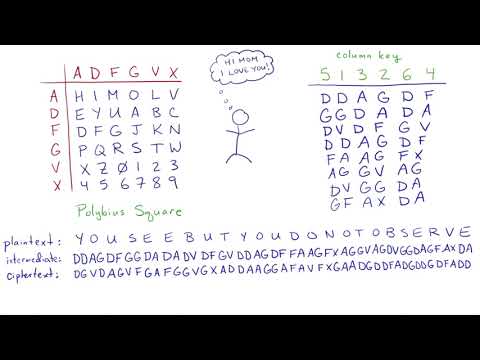 HI MOM
I LOVE YOU!
column key
A D F G V X
A H I M O L V
D E Y U A B C
F D F G J K N
G P Q R S T W
V X Z Ø 1 2 3
X 4 5 6 7 8 9
Polybius Square
5 1 3 2 6 4
D D A G D F
G G D A D A
D V D F G V
D D A G D F
F A A G F X
A G G V A G
D V G G D A
G F A X D A
plaintext: Y O U S E E B U T Y O U D O N O T O B S E R V E
intermediate: DDAGDFGGDADADVDFGVDDAGDFFAAGFXAGGVAGDVGGDAGFAXDA
ciptertext: DGVDAGVFGAFGGVGXADDAAGGAFAVFXGAADGDDFADGDDGDFADD